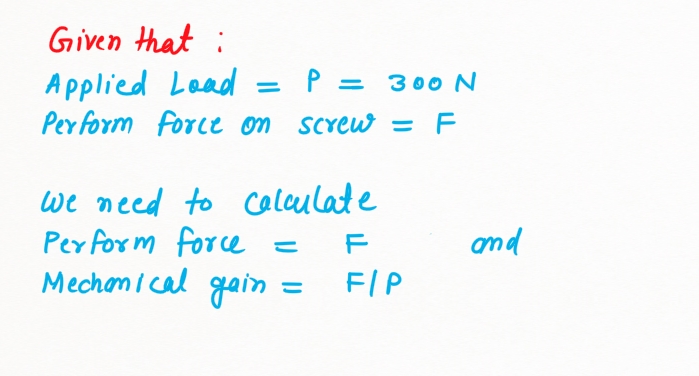 Given that :
Applied Load = P = 300 N
Perform force on screw = F
we need to calculate
Perform force = F and
Mechanical gain = F/P